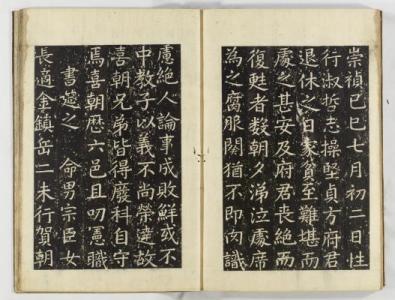 崇禎己巳七月初二日性
行淑哲志操堅貞方府君
退休之日家貧至難堪而
處之甚安及府君喪絶而
復甦者数朝夕涕泣處席
為之腐服闋猶不即肉識
慮絶人論事成敗鮮或不
中教子以義不尚榮達故
喜朝兄弟皆得廢科自守
焉喜朝歷六邑且叨憲職
書筵之 命男宗臣女
長適金鎮岳二未行賀朝